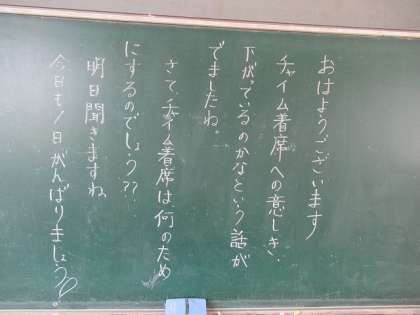 おはようございます
チャイム着席への意しき、
下がっているのかなという話が
でましたね。
さて、チャイム着席は、何のため
にするのでしょう??
明日聞きますね
今日も1日がんばりましょう。